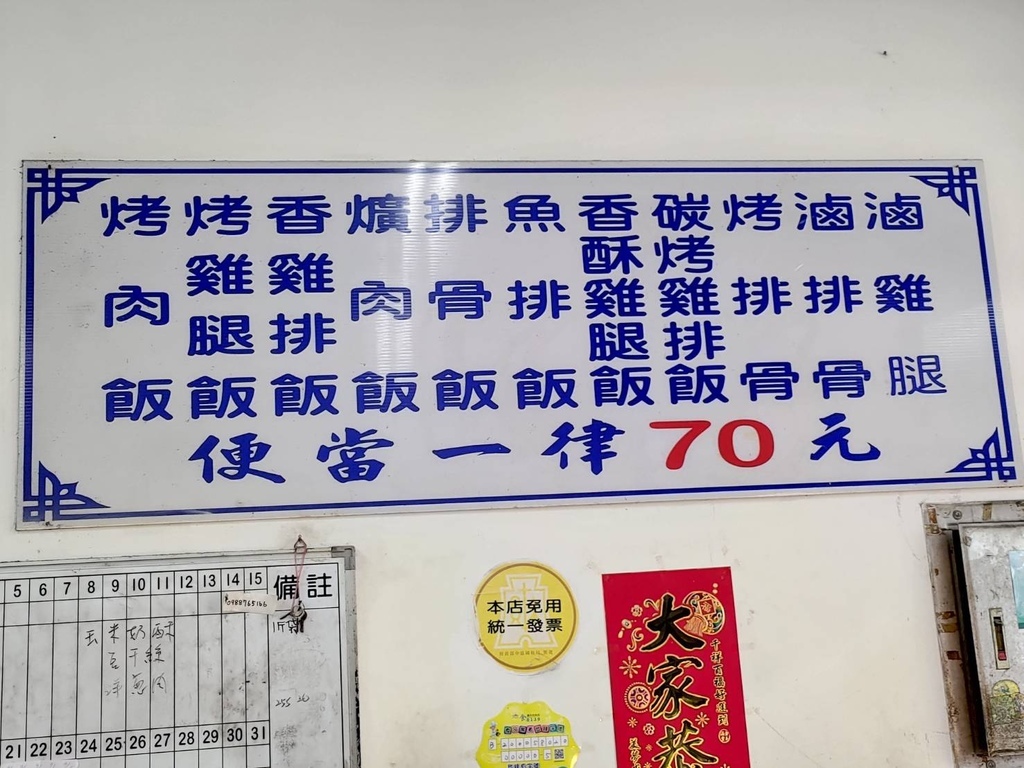 烤肉飯
烤雞腿飯
香雞排飯
爌肉飯
排骨飯
魚排飯
香酥雞腿飯
碳烤雞排飯
烤排骨
滷排骨
滷雞腿
便當一律70元
5 6 7 8 9 10 11 12 13 14 15 備註
21 22 23 24 25 26 27 28 29 30 31
本店免用
統一發票
大家恭